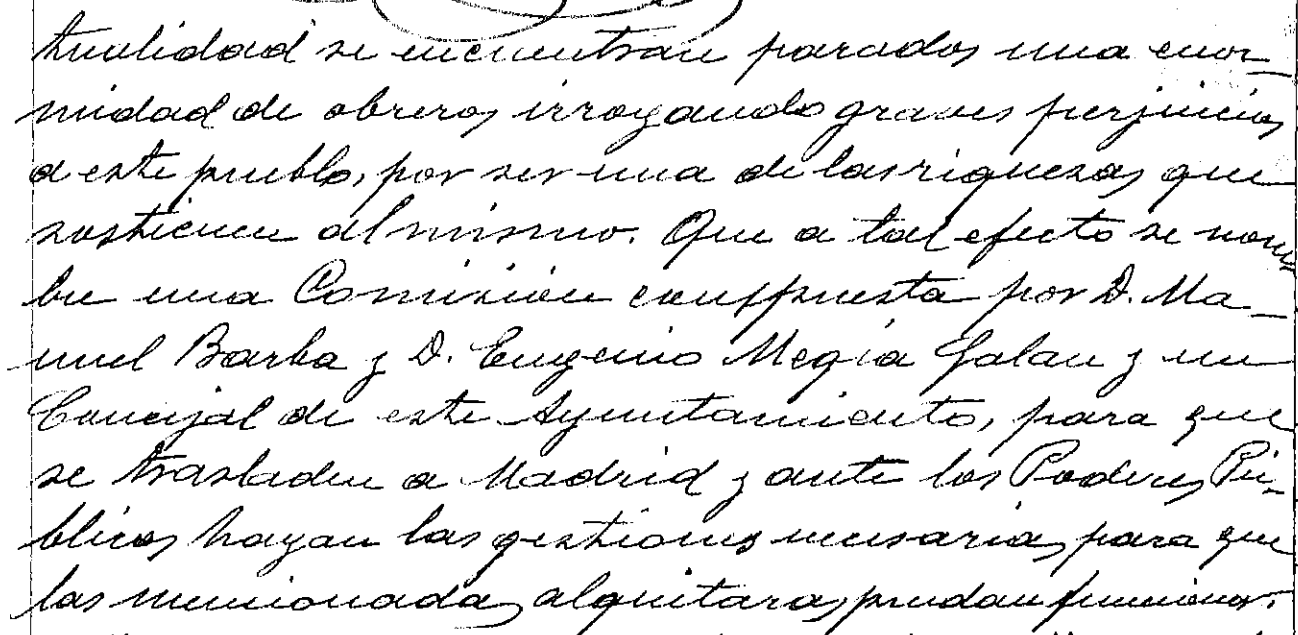 tualidad se encuentran parados una enor-
midad de obreros irrogando graves perjuicios
a este pueblo, por ser una de las riquezas que
sostienen al mismo. Que a tal efecto se nom
bre una Comisión compuesta por D. Ma-
nuel Barba y D. Eugenio Megia Galan y un
Concejal de este Ayuntamiento, para que
se trasladen a Madrid y ante los Poderes Pú-
blicos hagan las gestiones necesarias para que
las mencionadas alquitaras puedan funcionar.